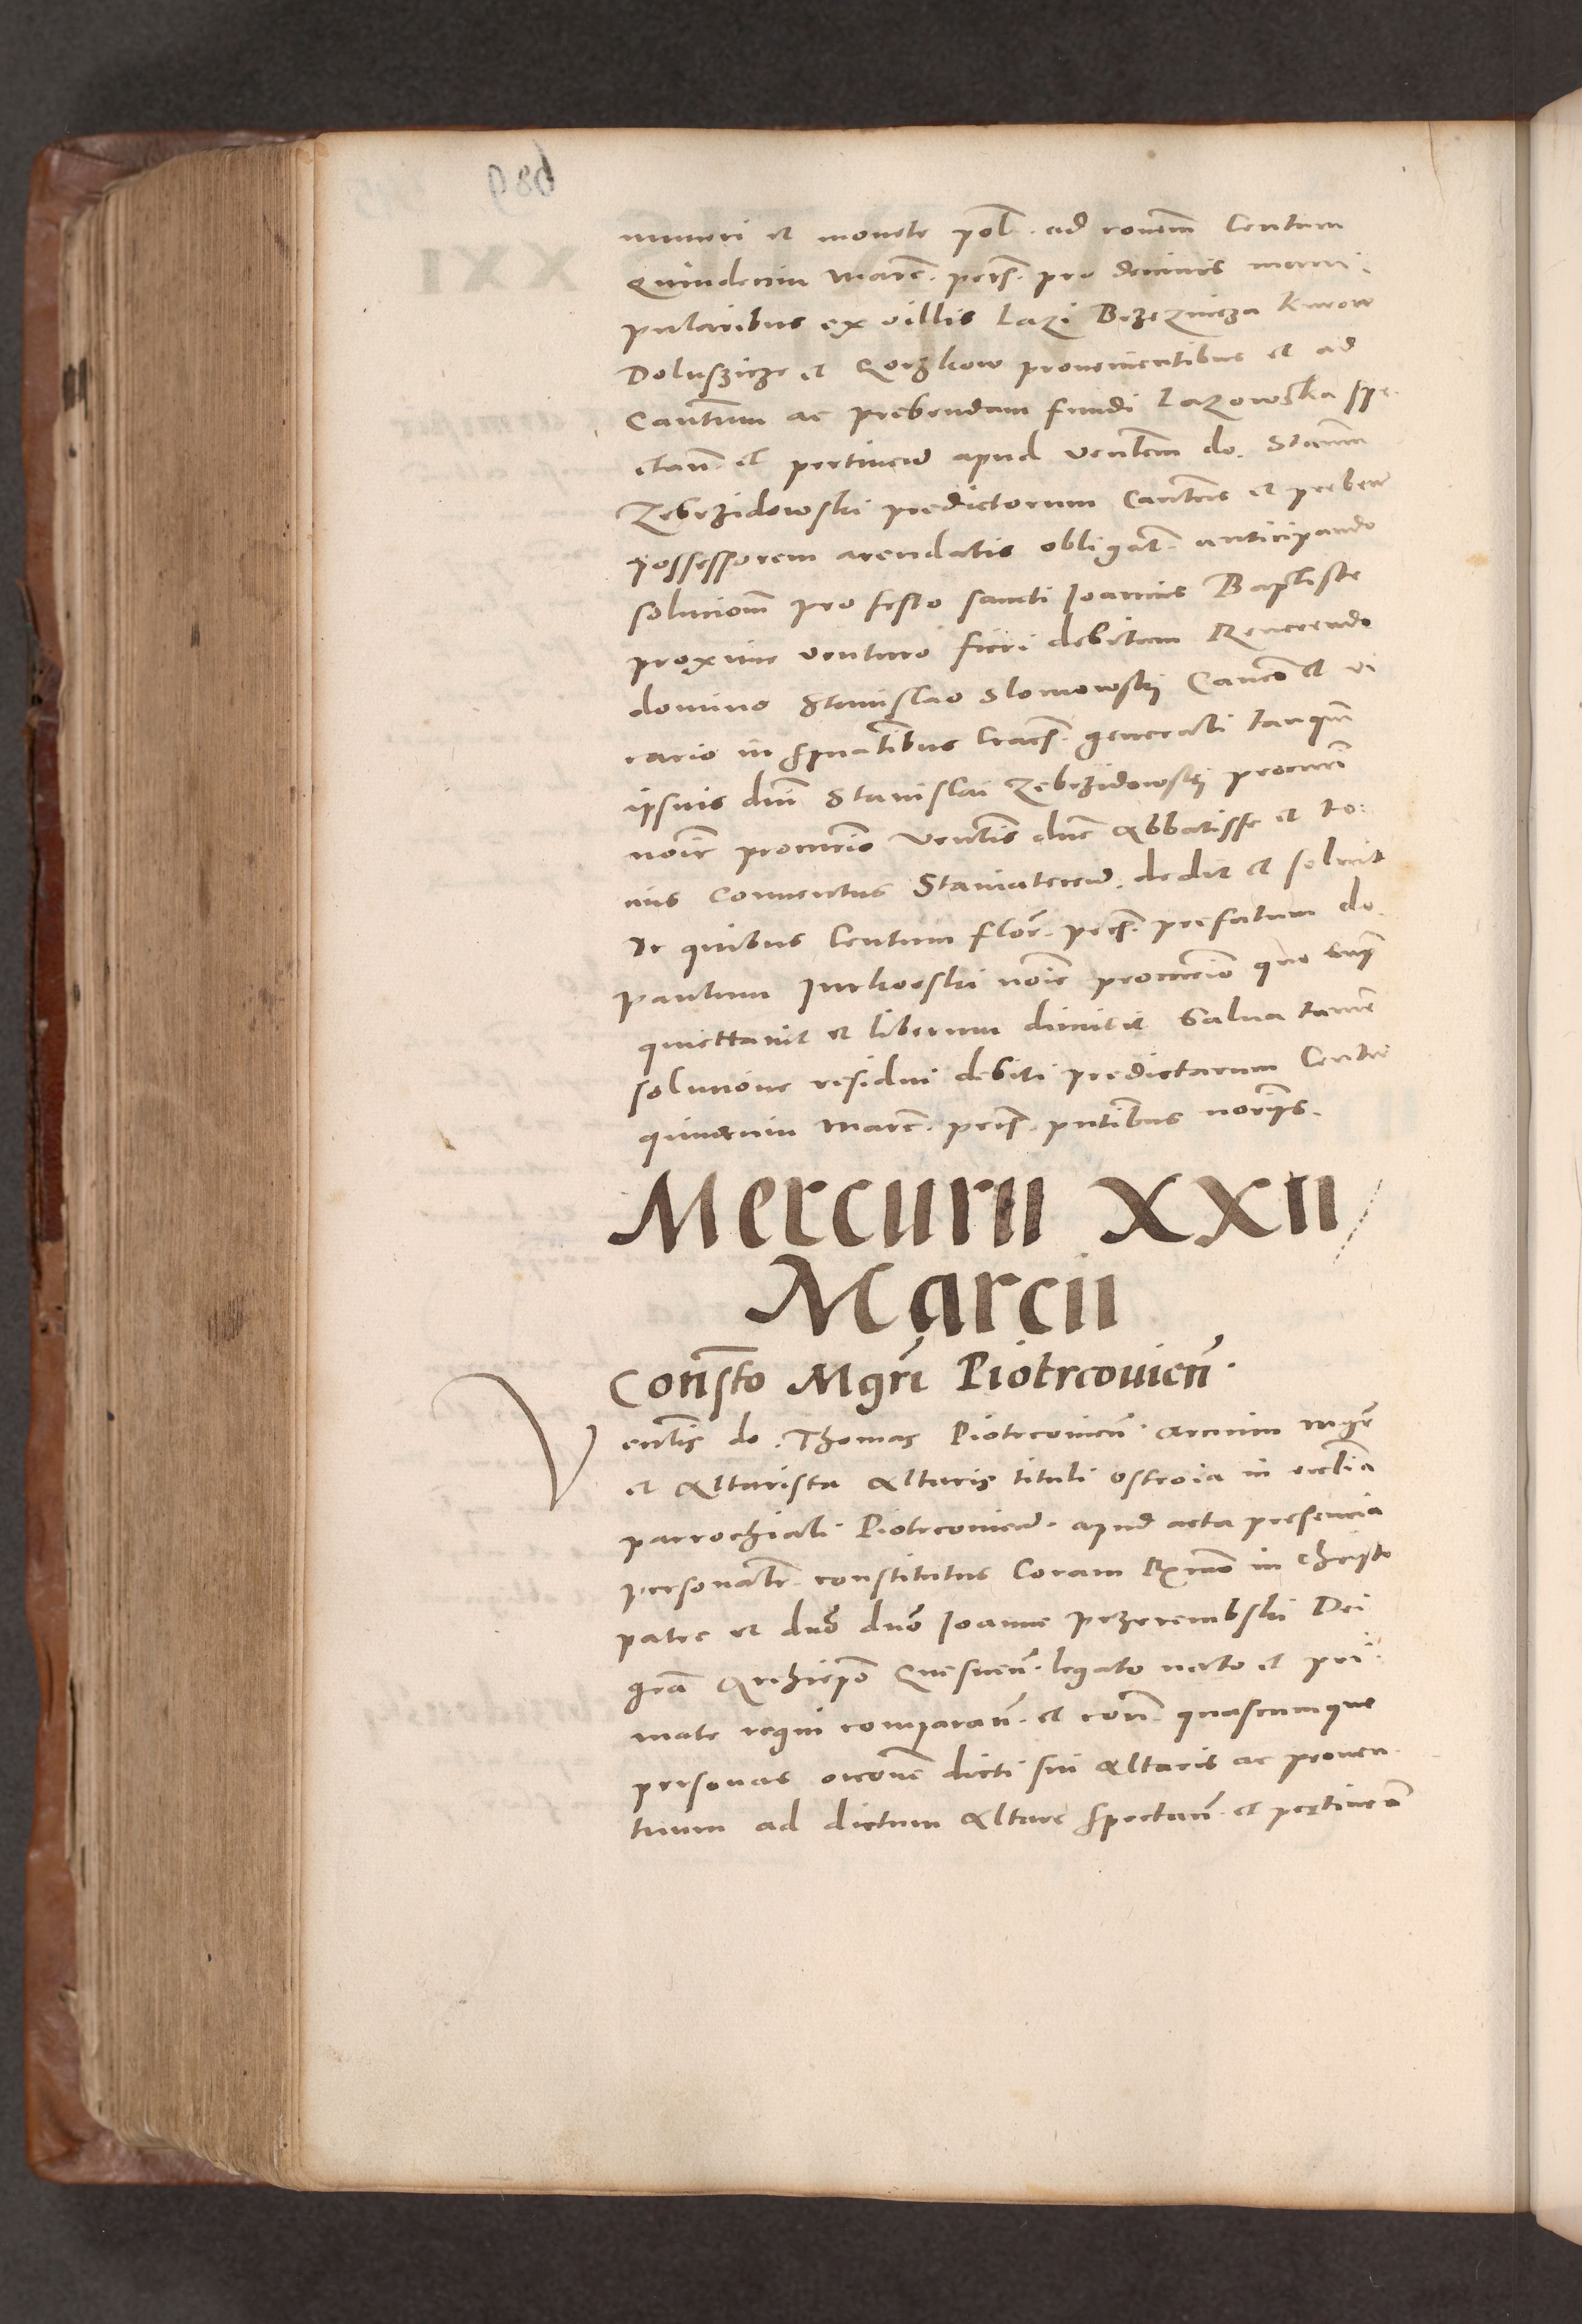 numeri et monete pol. ad rõnem Centum
Quindecim marc. pecs. pro decimis mani
pularibus ex villis Lazi Brzeznicza Kurow
Doluszicze et Gorzkow provenientibus et ad
Cantum ac prebendam fundi Lazowska spe
ctañ. et pertineñ apud Venlem do. Stanm
Zebrzidowski predictorum Cantus et preben
possessorem arendatis obligat. anticipando
solucionm pro festo sancti Joannis Baptiste
proxime venturo fieri debitam Reverendo
domino Stanislao Slomowski Canco et vi
cario in spualibus Cracs. generali tanqm
ipsius dni Stanislai Zebrzidowski procuri
noie procurio Venlis dne Abbatisse et to:
cius Conventus Staniateceñ. dedit et solvit
De quibus Centum flor. pecs. prefatum do.
Paulum Jurkoeski noie procurio quo supra
quiettavit et liberum dimisit Salva tamen
solucione residui debiti predictarum Centum
quindecim marc. pecs. pntibus noriis.
Mercurii XXII
Marcii
Consto Mgri Piotrcovieñ.
Venlis do. Thomas Piotrcovieñ. arcium mgr
et Altarista Altaris tituli ostroia in ecclia
parrochiali Piotrcovieñ. apud acta presencia
personalr. constitutus Coram Rmo in Christo
patre et dno dno Joanne Przerembski Dei
gra Archiepo Gnesneñ. legato nato et pri
mate regni comparañ. et coñ. quascunque
personas occone dicti sui Altaris ac proven
tuum ad dictum Altare spectañ. et pertineñ